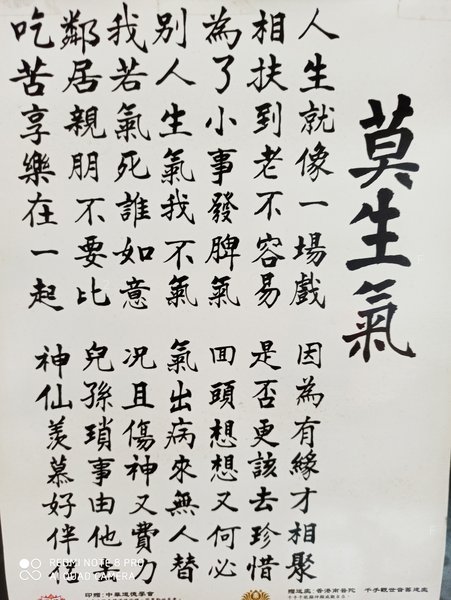 莫生氣
人生就像一場戲
因為有緣才相聚
相扶到老不容易
是否更該去珍惜
為了小事發脾氣
回頭想想又何必
別人生氣我不氣
氣出病來無人替
我若氣死誰如意
況且傷神又費力
鄰居親朋不要比
兒孫瑣事由他去
吃苦享樂在一起
神仙羨慕好伴侶
印贈：中華道德學會
贈送處：香港濟普陀 千手觀世音菩送處
REDMI NOTE 8 PRO
AI QUAD CAMERA